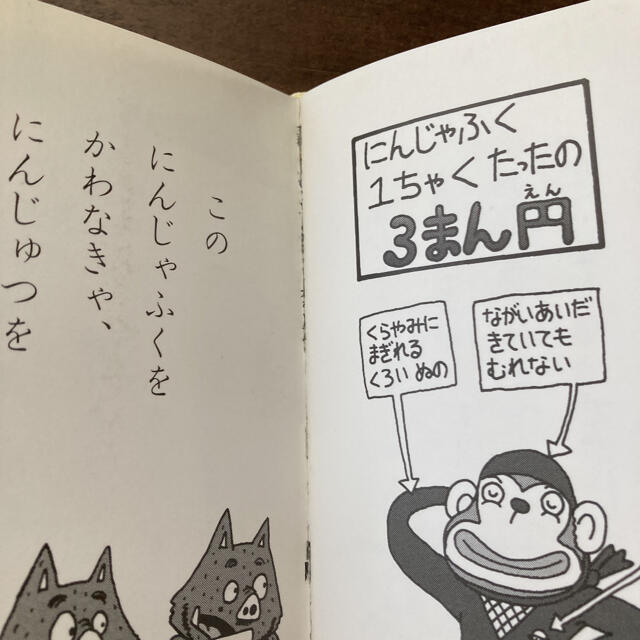 この
にんじゃふくを
かわなきゃ、
にんじゅつを
にんじゃふく
1ちゃくたったの
3まん円
えん
くらやみに
まぎれる
くろいぬの
ながいあいだ
きていても
むれない